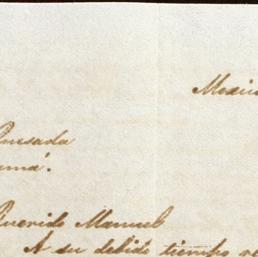 Mexico
Quesada
amá.
Querido Manuel
A su debido tiempo re